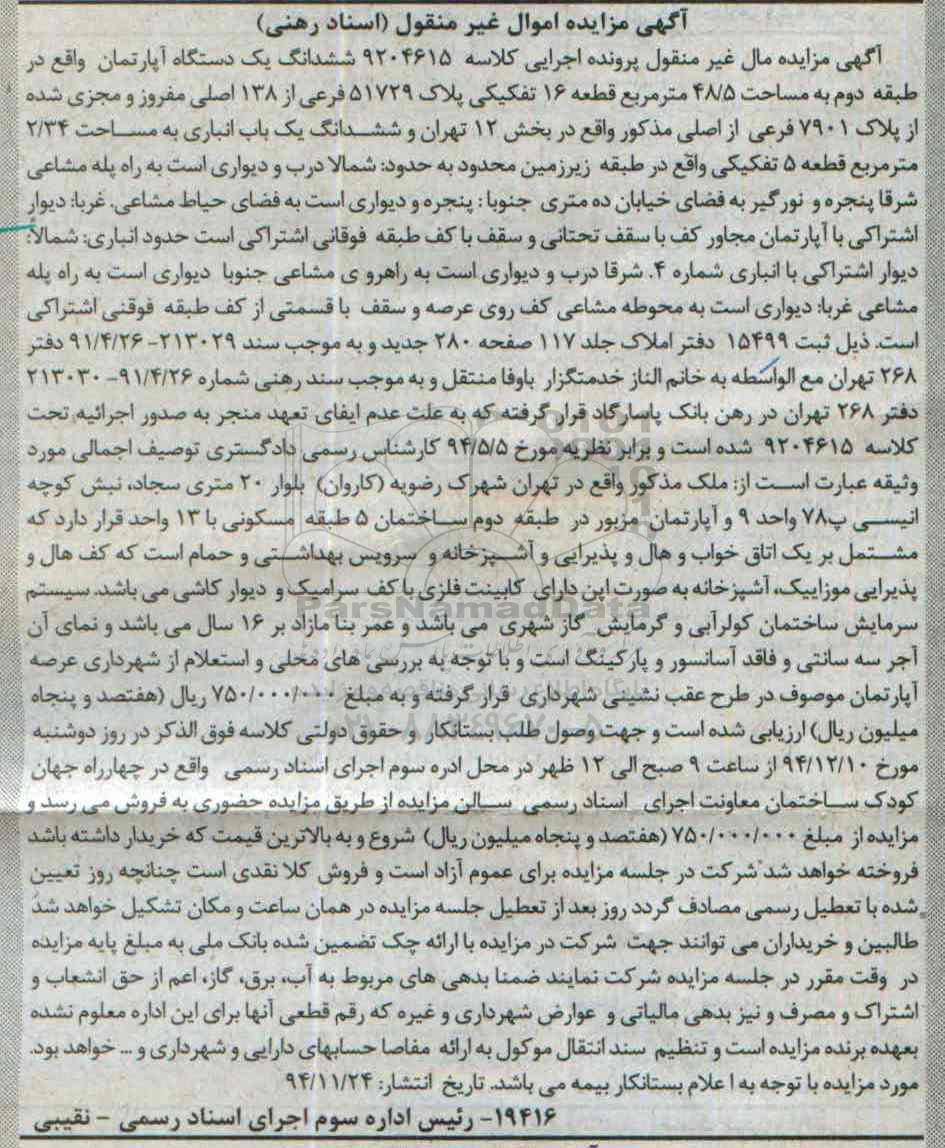 آگهی مزایده اموال غیر منقول (اسناد رهنی)
آگهی مزایده مال غیر منقول پرونده اجرایی کلاسه ۹۲۰۴۶۱۵ ششدانگ یک دستگاه آپارتمان واقع در
طبقه دوم به مساحت ۴۸/۵ مترمربع قطعه ۱۶ تفکیکی پلاک ۵۱۷۲۹ فرعی از ۱۳۸ اصلی مفروز و مجزی شده
از پلاک ۷۹۰۱ فرعی از اصلی مذکور واقع در بخش ۱۲ تهران و ششدانگ یک باب انباری به مساحت ۲/۳۴
مترمربع قطعه ۵ تفکیکی واقع در طبقه زیرزمین محدود به حدود: شمالا درب و دیواری است به راه پله مشاعی
شرقا پنجره و نورگیر به فضای خیابان ده متری جنوبا: پنجره و دیواری است به فضای حیاط مشاعی. غربا: دیوار
اشتراکی با آپارتمان مجاور کف با سقف تحتانی و سقف با کف طبقه فوقانی اشتراکی است حدود انباری: شمالا:
دیوار اشتراکی با انباری شماره ۴. شرقا درب و دیواری است به راهرو ی مشاعی جنوبا دیواری است به راه پله
مشاعی غربا: دیواری است به محوطه مشاعی کف روی عرصه و سقف با قسمتی از کف طبقه فوقنی اشتراکی
است. ذیل ثبت ۱۵۴۹۹ دفتر املاک جلد ۱۱۷ صفحه ۲۸۰ جدید و به موجب سند ۲۱۳۰۲۹-۹۱/۴/۲۶ دفتر
۲۶۸ تهران مع الواسطه به خانم الناز خدمتگزار باوفا منتقل و به موجب سند رهنی شماره ۹۱/۴/۲۶-۲۱۳۰۳۰
دفتر ۲۶۸ تهران در رهن بانک پاسارگاد قرار گرفته که به علت عدم ایفای تعهد منجر به صدور اجرائیه تحت
کلاسه ۹۲۰۴۶۱۵ شده است و برابر نظریه مورخ ۹۴/۵/۵ کارشناس رسمی دادگستری توصیف اجمالی مورد
وثیقه عبارت است از: ملک مذکور واقع در تهران شهرک رضویه (کاروان) بلوار ۲۰ متری سجاد، نبش کوچه
انیسی پ۷۸ واحد ۹ و آپارتمان مزبور در طبقه دوم ساختمان ۵ طبقه مسکونی با ۱۳ واحد قرار دارد که
مشتمل بر یک اتاق خواب و هال و پذیرایی و آشپزخانه و سرویس بهداشتی و حمام است که کف هال و
پذیرایی موزاییک، آشپزخانه به صورت اپن دارای کابینت فلزی با کف سرامیک و دیوار کاشی می باشد. سیستم
سرمایش ساختمان کولرآبی و گرمایش گاز شهری می باشد و عمر بنا مازاد بر ۱۶ سال می باشد و نمای آن
آجر سه سانتی و فاقد آسانسور و پارکینگ است و با توجه به بررسی های محلی و استعلام از شهرداری عرصه
آپارتمان موصوف در طرح عقب نشینی شهرداری قرار گرفته و به مبلغ ۷۵۰/۰۰۰/۰۰۰ ریال (هفتصد و پنجاه
میلیون ریال) ارزیابی شده است و جهت وصول طلب بستانکار و حقوق دولتی کلاسه فوق الذکر در روز دوشنبه
مورخ ۹۴/۱۲/۱۰ از ساعت ۹ صبح الی ۱۲ ظهر در محل ادره سوم اجرای اسناد رسمی واقع در چهارراه جهان
کودک ساختمان معاونت اجرای اسناد رسمی سالن مزایده از طریق مزایده حضوری به فروش می رسد و
مزایده از مبلغ ۷۵۰/۰۰۰/۰۰۰ (هفتصد و پنجاه میلیون ریال) شروع و به بالاترین قیمت که خریدار داشته باشد
فروخته خواهد شد شرکت در جلسه مزایده برای عموم آزاد است و فروش کلا نقدی است چنانچه روز تعیین
شده با تعطیل رسمی مصادف گردد روز بعد از تعطیل جلسه مزایده در همان ساعت و مکان تشکیل خواهد شد
طالبین و خریداران می توانند جهت شرکت در مزایده با ارائه چک تضمین شده بانک ملی به مبلغ پایه مزایده
در وقت مقرر در جلسه مزایده شرکت نمایند ضمنا بدهی های مربوط به آب، برق، گاز، اعم از حق انشعاب و
اشتراک و مصرف و نیز بدهی مالیاتی و عوارض شهرداری و غیره که رقم قطعی آنها برای این اداره معلوم نشده
بعهده برنده مزایده است و تنظیم سند انتقال موکول به ارائه مفاصا حسابهای دارایی و شهرداری و ... خواهد بود.
مورد مزایده با توجه به ا علام بستانکار بیمه می باشد. تاریخ انتشار: ۹۴/۱۱/۲۴
۱۹۴۱۶- رئیس اداره سوم اجرای اسناد رسمی - نقیبی
ParsNamadData